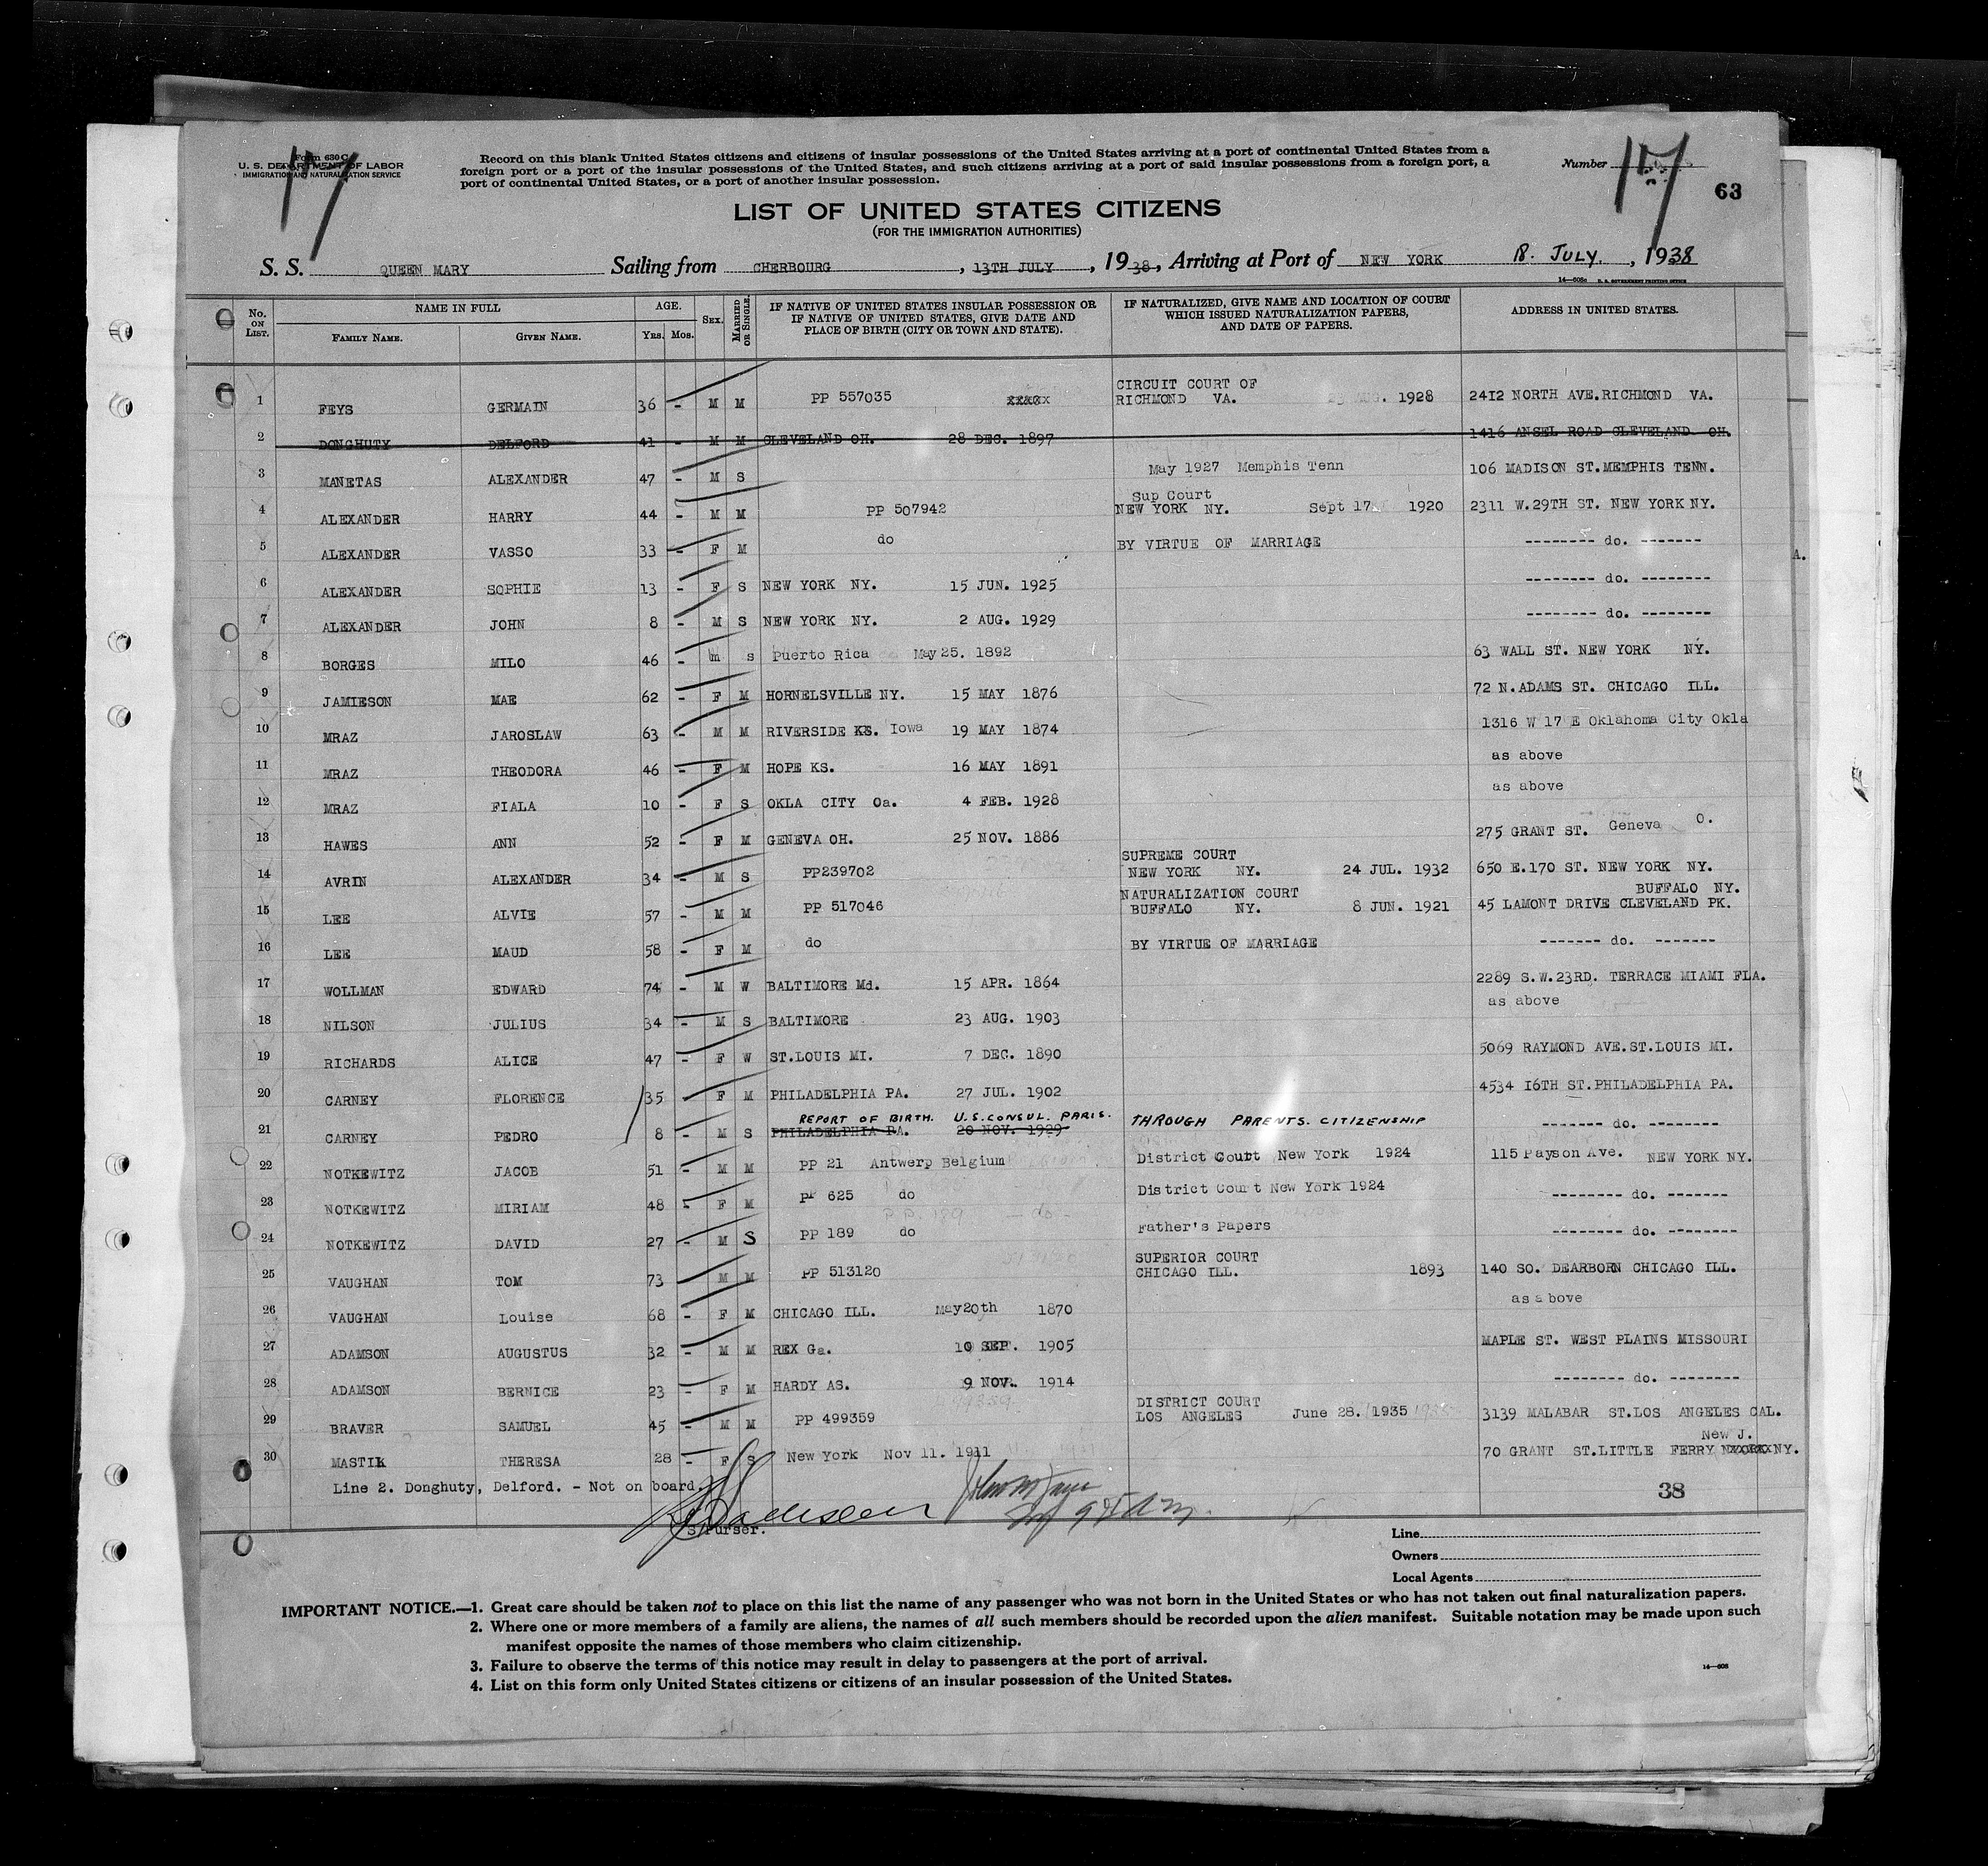 Form 630 C
U. S. DEPARTMENT OF LABOR
IMMIGRATION AND NATURALIZATION SERVICE
17
Record on this blank United States citizens and citizens of insular possessions of the United States arriving at a port of continental United States from a
foreign port or a port of the insular possessions of the United States, and such citizens arriving at a port of said insular possessions from a foreign port, a
port of continental United States, or a port of another insular possession.
Number 17
63
LIST OF UNITED STATES CITIZENS
(FOR THE IMMIGRATION AUTHORITIES)
S. S. QUEEN MARY Sailing from CHERBOURG, 13TH JULY, 1938, Arriving at Port of NEW YORK 18. JULY., 1938
14—608c U. S. GOVERNMENT PRINTING OFFICE
No. ON LIST. NAME IN FULL FAMILY NAME. GIVEN NAME. AGE. YRS. MOS. SEX. MARRIED OR SINGLE. IF NATIVE OF UNITED STATES INSULAR POSSESSION OR IF NATIVE OF UNITED STATES, GIVE DATE AND PLACE OF BIRTH (CITY OR TOWN AND STATE). IF NATURALIZED, GIVE NAME AND LOCATION OF COURT WHICH ISSUED NATURALIZATION PAPERS, AND DATE OF PAPERS. ADDRESS IN UNITED STATES.
1 FEYS GERMAIN 36 - M M PP 557035 CIRCUIT COURT OF RICHMOND VA. AUG. 1928 2412 NORTH AVE. RICHMOND VA.
2 DONGHUTY DELFORD 41 - M M CLEVELAND OH. 28 DEC. 1897 1416 ANSEL ROAD CLEVELAND OH.
3 MANETAS ALEXANDER 47 - M S May 1927 Memphis Tenn 106 MADISON ST. MEMPHIS TENN.
4 ALEXANDER HARRY 44 - M M PP 507942 Sup Court NEW YORK NY. Sept 17 1920 2311 W. 29TH ST. NEW YORK NY.
5 ALEXANDER VASSO 33 - F M do BY VIRTUE OF MARRIAGE -------- do. -------
6 ALEXANDER SOPHIE 13 - F S NEW YORK NY. 15 JUN. 1925 -------- do. --------
7 ALEXANDER JOHN 8 - M S NEW YORK NY. 2 AUG. 1929 -------- do. --------
8 BORGES MILO 46 - m s Puerto Rica May 25. 1892 63 WALL ST. NEW YORK NY.
9 JAMIESON MAE 62 - F M HORNELSVILLE NY. 15 MAY 1876 72 N. ADAMS ST. CHICAGO ILL.
10 MRAZ JAROSLAW 63 - M M RIVERSIDE KS. Iowa 19 MAY 1874 1316 W 17 E Oklahoma City Okla
11 MRAZ THEODORA 46 - F M HOPE KS. 16 MAY 1891 as above
12 MRAZ FIALA 10 - F S OKLA CITY Oa. 4 FEB. 1928 as above
13 HAWES ANN 52 - F M GENEVA OH. 25 NOV. 1886 275 GRANT ST. Geneva O.
14 AVRIN ALEXANDER 34 - M S PP239702 SUPREME COURT NEW YORK NY. 24 JUL. 1932 650 E. 170 ST. NEW YORK NY.
15 LEE ALVIE 57 - M M PP 517046 NATURALIZATION COURT BUFFALO NY. 8 JUN. 1921 BUFFALO NY. 45 LAMONT DRIVE CLEVELAND PK.
16 LEE MAUD 58 - F M do BY VIRTUE OF MARRIAGE ------- do. -------
17 WOLLMAN EDWARD 74 - M W BALTIMORE Md. 15 APR. 1864 2289 S.W. 23RD. TERRACE MIAMI FLA.
18 NILSON JULIUS 34 - M S BALTIMORE 23 AUG. 1903 as above
19 RICHARDS ALICE 47 - F W ST. LOUIS MI. 7 DEC. 1890 5069 RAYMOND AVE. ST. LOUIS MI.
20 CARNEY FLORENCE 35 - F M PHILADELPHIA PA. 27 JUL. 1902 4534 16TH ST. PHILADELPHIA PA.
REPORT OF BIRTH. U.S. CONSUL. PARIS.
21 CARNEY PEDRO 8 - M S PHILADELPHIA PA. 20 NOV. 1929 THROUGH PARENTS. CITIZENSHIP ------- do. --------
22 NOTKEWITZ JACOB 51 - M M PP 21 Antwerp Belgium District Court New York 1924 115 Payson Ave. NEW YORK NY.
23 NOTKEWITZ MIRIAM 48 - F M PP 625 do District Court New York 1924 -------- do. -------
24 NOTKEWITZ DAVID 27 - M S PP 189 do Father's Papers -------- do. --------
25 VAUGHAN TOM 73 - M M PP 513120 SUPERIOR COURT CHICAGO ILL. 1893 140 SO. DEARBORN CHICAGO ILL.
26 VAUGHAN Louise 68 - F M CHICAGO ILL. May 20th 1870 as above
27 ADAMSON AUGUSTUS 32 - M M REX Ga. 10 SEP. 1905 MAPLE ST. WEST PLAINS MISSOURI
28 ADAMSON BERNICE 23 - F M HARDY AS. 9 NOV. 1914 -------- do. --------
29 BRAVER SAMUEL 45 - M M PP 499359 DISTRICT COURT LOS ANGELES June 28. 1935 3139 MALABAR ST. LOS ANGELES CAL.
30 MASTIK THERESA 28 - F S New York Nov 11. 1911 New J. 70 GRANT ST. LITTLE FERRY NY.
Line 2. Donghuty, Delford. - Not on board.
38
S/Purser.
Line
Owners
Local Agents
IMPORTANT NOTICE.—1. Great care should be taken not to place on this list the name of any passenger who was not born in the United States or who has not taken out final naturalization papers.
2. Where one or more members of a family are aliens, the names of all such members should be recorded upon the alien manifest. Suitable notation may be made upon such
manifest opposite the names of those members who claim citizenship.
3. Failure to observe the terms of this notice may result in delay to passengers at the port of arrival.
4. List on this form only United States citizens or citizens of an insular possession of the United States.
14—608